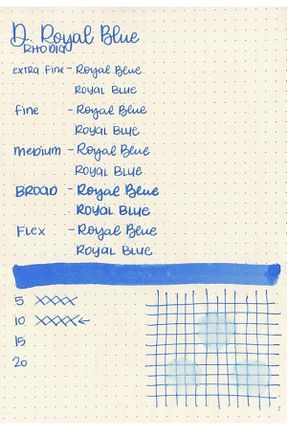 D. Royal Blue
RHODIA
extra fine - Royal Blue
ROYAL BLUE
fine - Royal Blue
ROYAL BLUE
medium - Royal Blue
ROYAL BLUE
BROAD - Royal Blue
ROYAL BLUE
FLEX - Royal Blue
ROYAL BLUE
5 XXXX
10 XXXX←
15
20